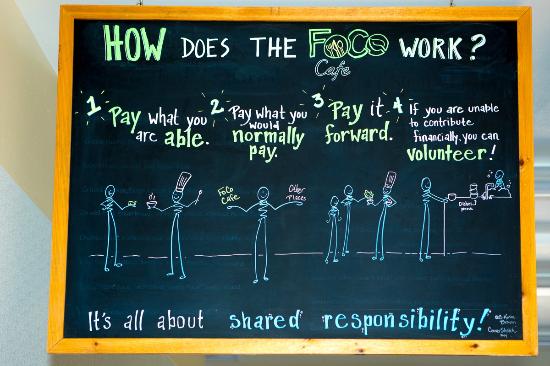 HOW DOES THE FoCo WORK?
Cafe
1 Pay what you
are able.
2 Pay what you
would
normally
pay.
3 Pay it
forward.
4 If you are unable
to contribute
financially, you can
volunteer!
FoCo
Cafe
Other
Places
It's all about shared responsibility!